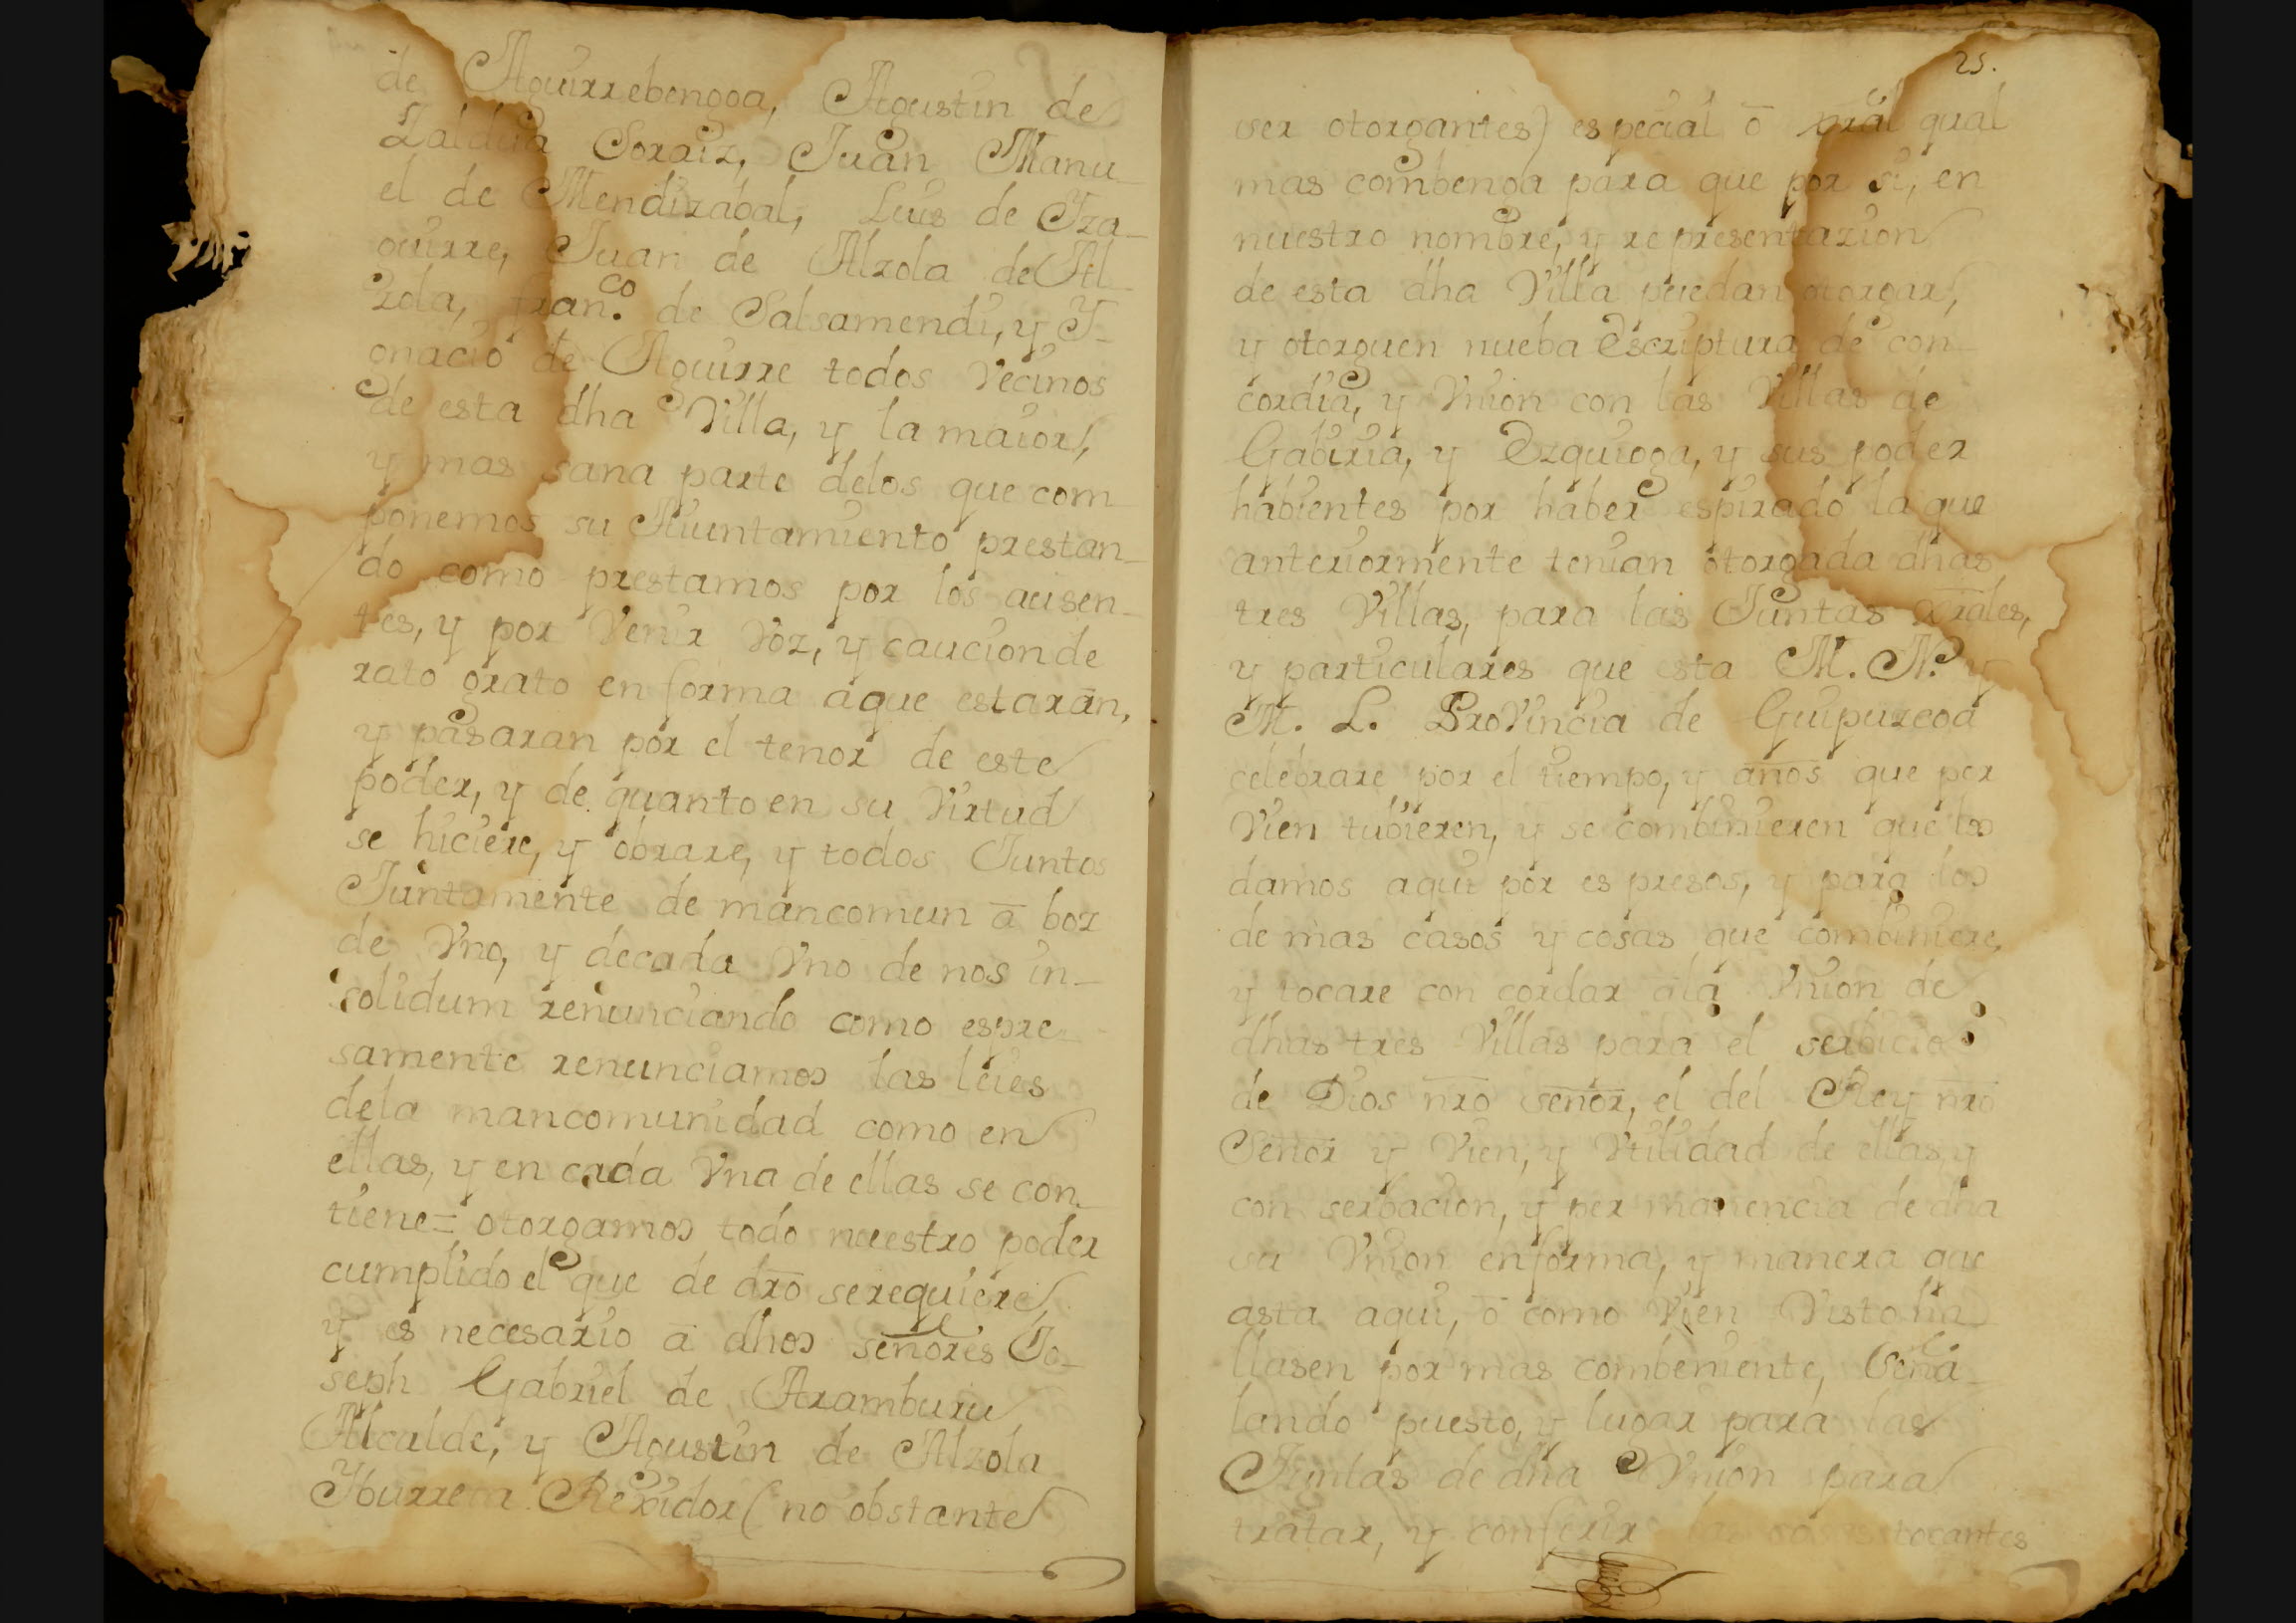 de Aguirrebengoa, Agustin de
Zaldua Soraiz, Juan Manu_
el de Mendizabal, Luis de Yza_
guirre, Juan de Alzola de Al_
zola, fran.co de Salsamendi, y Y_
gnacio de Aguirre todos Vecinos
de esta dha Villa, y la maior,
y mas sana parte delos que com_
ponemos su Aiuntamiento prestan_
do como prestamos por los ausen_
tes, y por Venir Voz, y caucion de
rato grato en forma aque estaran,
y pasaran por el tenor de este
poder, y de quanto en su Virtud
se hiciere, y obrare, y todos Juntos
Juntamente de mancomun a boz
de Vno, y decada Vno de nos in_
solidum renunciando como espre_
samente renunciamos las leies
dela mancomunidad como en
ellas, y en cada Vna de ellas se con_
tiene= otorgamos todo nuestro poder
cumplido el que de dro serequiere,
y es necesario a dhos señores Jo_
seph Gabriel de Aramburu
Alcalde, y Agustin de Alzola
Yburreta Rexidor (no obstante
25.
ser otorgantes) especial o gral qual
mas combenga para que por si, en
nuestro nombre, y representazion
de esta dha Villa puedan otorgar,
y otorguen nueba Escriptura de con_
cordia, y Vnion con las Villas de
Gabiria, y Ezquioga, y sus poder
habientes por haber espirado la que
anteriormente tenian otorgada dhas
tres Villas, para las Juntas grales,
y particulares que esta M. N. y
M. L. ProVincia de Guipuzcoa
celebrare por el tiempo, y años que por
Vien tubieren, y se combinieren que los
damos aqui por espresos, y para los
de mas casos y cosas que combiniere,
y tocare con cordar ala Vnion de
dhas tres Villas para el serbicio
de Dios nro señor, el del Rey nro
Señor y Vien, y Vtilidad de ellas, y
con serbacion, y per manencia de dha
su Vnion enforma, y manera que
asta aqui, o como Vien Visto ha_
llasen por mas combeniente, Seña_
lando puesto, y lugar para las
Juntas de dha Vnion para
tratar, y conferir las cosas tocantes